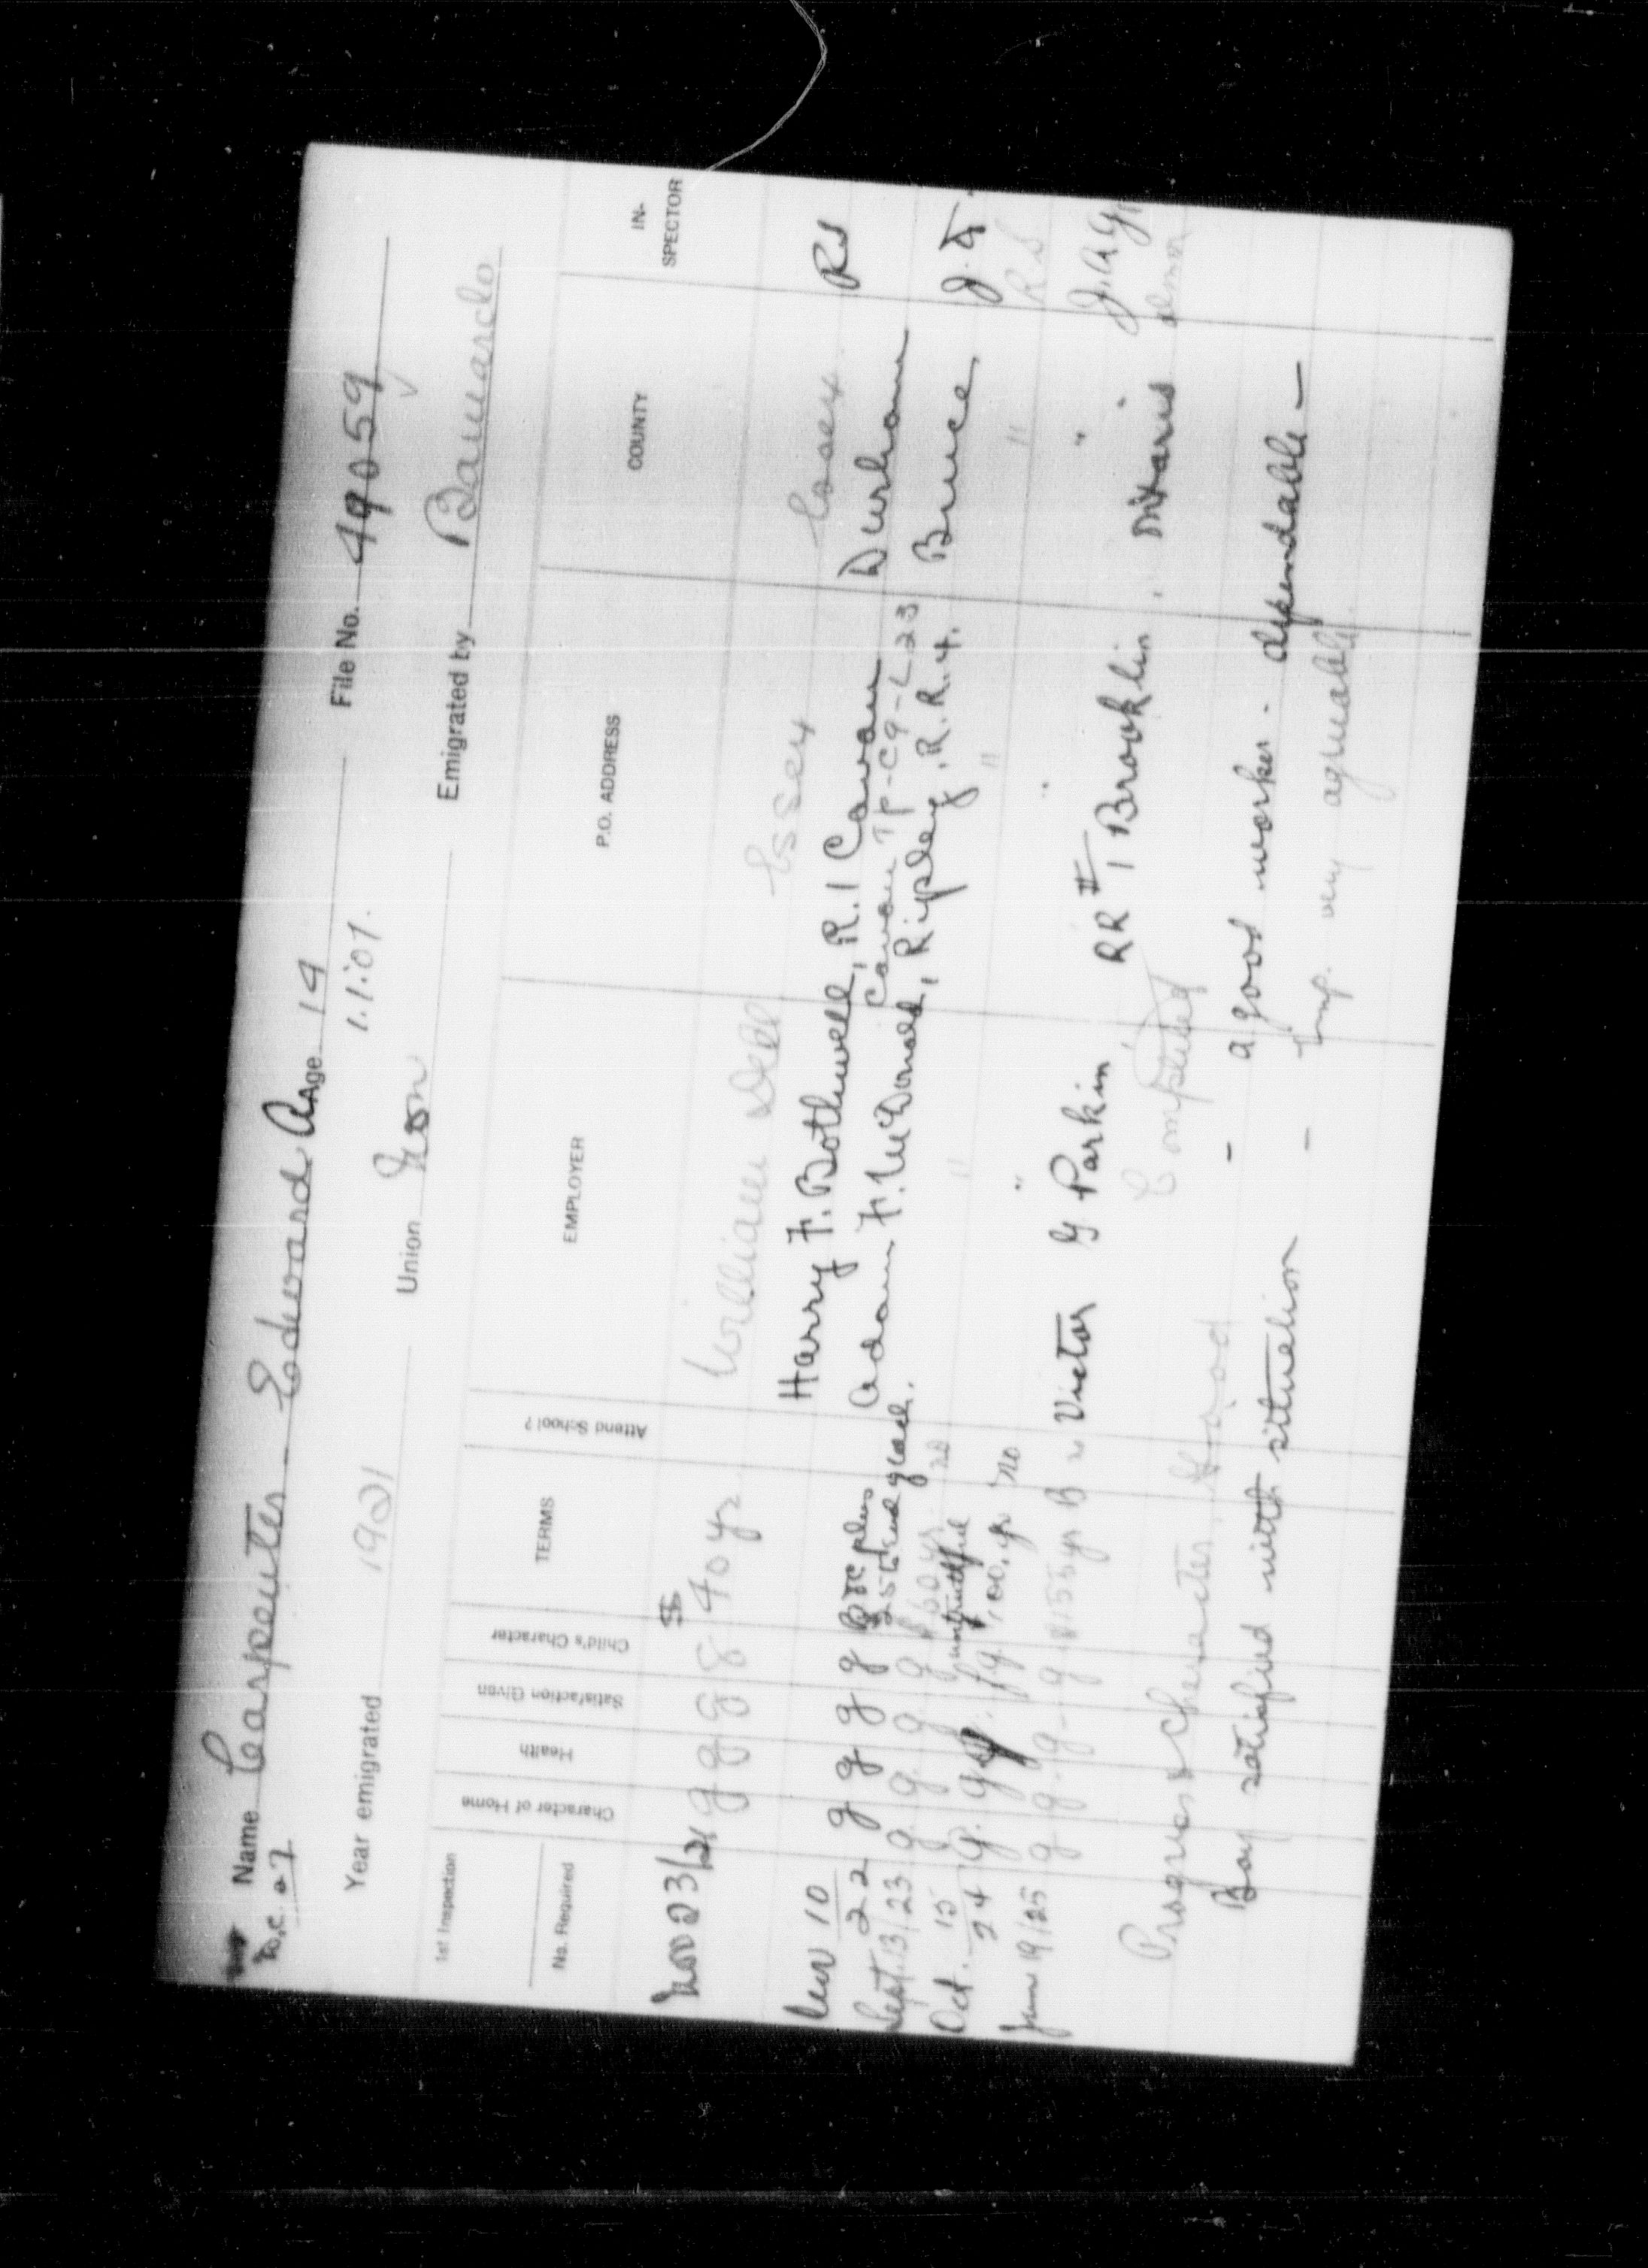 Name Carpenter Edward A. Age 14 File No. 49059
B.C. 27
Year emigrated 1921 1.1.07.
Union Non Emigrated by Barnardo
1st Inspection
No. Required Character of Home Health Satisfaction Given Child's Character TERMS Attend School? EMPLOYER P.O. ADDRESS COUNTY IN-SPECTOR
Nov 23/21 g g g g $40 yr William Essex Essex
10/22 g g g g plus Harry F. Bothwell, R.1 Cavan Durham RS
Cavan Tp-C9-L23
Sept. 13/23 g g g g 60 yr no Adam F. McDonald, Ripley, R.R.4. Bruce J.
untruthful
Oct. 15/24 g. g g. fg. 100. yr no " " " RS
Jun 19/25 g g. g - g 155 yr B Victor G Parkin RR#1 Brooklin. Ontario J.A.G.
Completed
Progress & Character Good
Boy satisfied with situation - a good worker - dependable -
- very agreeable